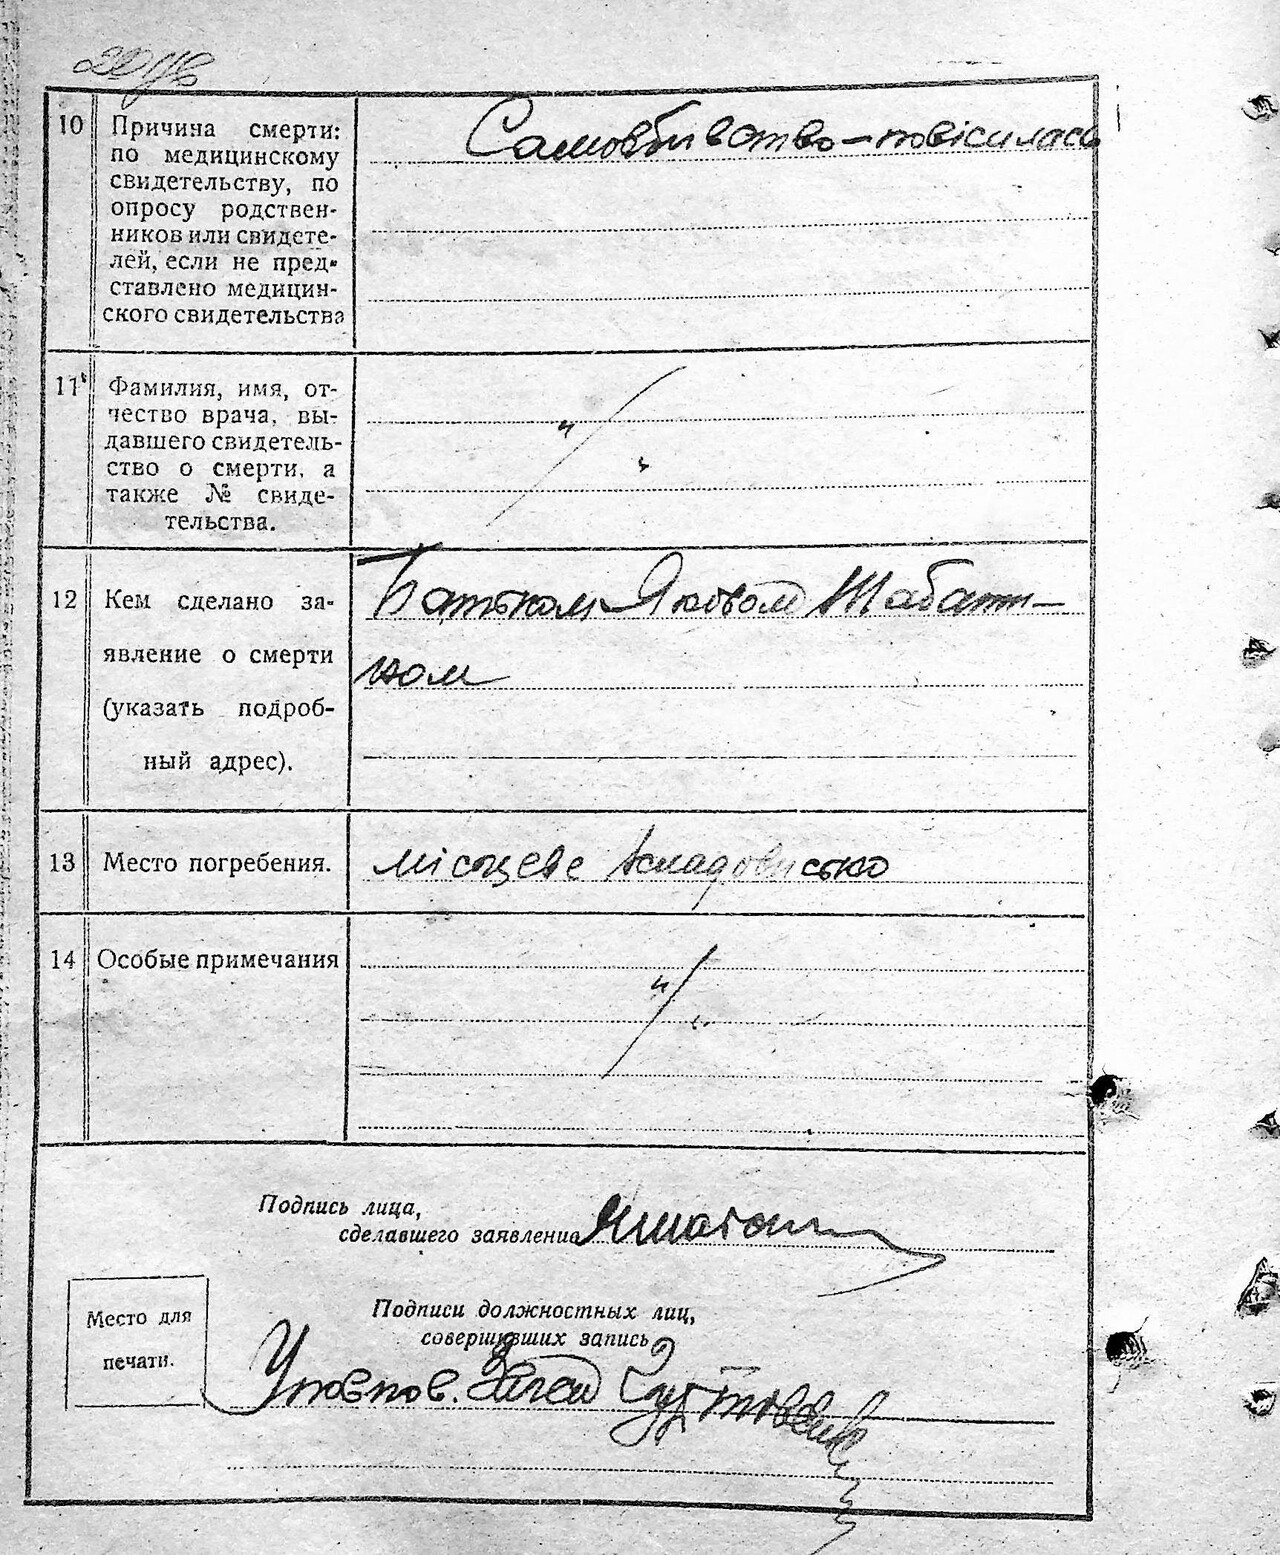 10
Причина смерти:
по медицинскому
свидетельству, по
опросу родствен-
ников или свидете-
лей, если не пред-
ставлено медицин-
ского свидетельства
Самовбивство – повісилась
11
Фамилия, имя, от-
чество врача, вы-
давшего свидетель-
ство о смерти, а
также № свиде-
тельства.
"/"
12
Кем сделано за-
явление о смерти
(указать подроб-
ный адрес).
Батьком Яковом Шабати-
ном
13
Место погребения.
місцеве кладовисько
14
Особые примечания
"/"
Подпись лица,
сделавшего заявление
Место для
печати.
Подписи должностных лиц,
совершивших запись
Уповнов.